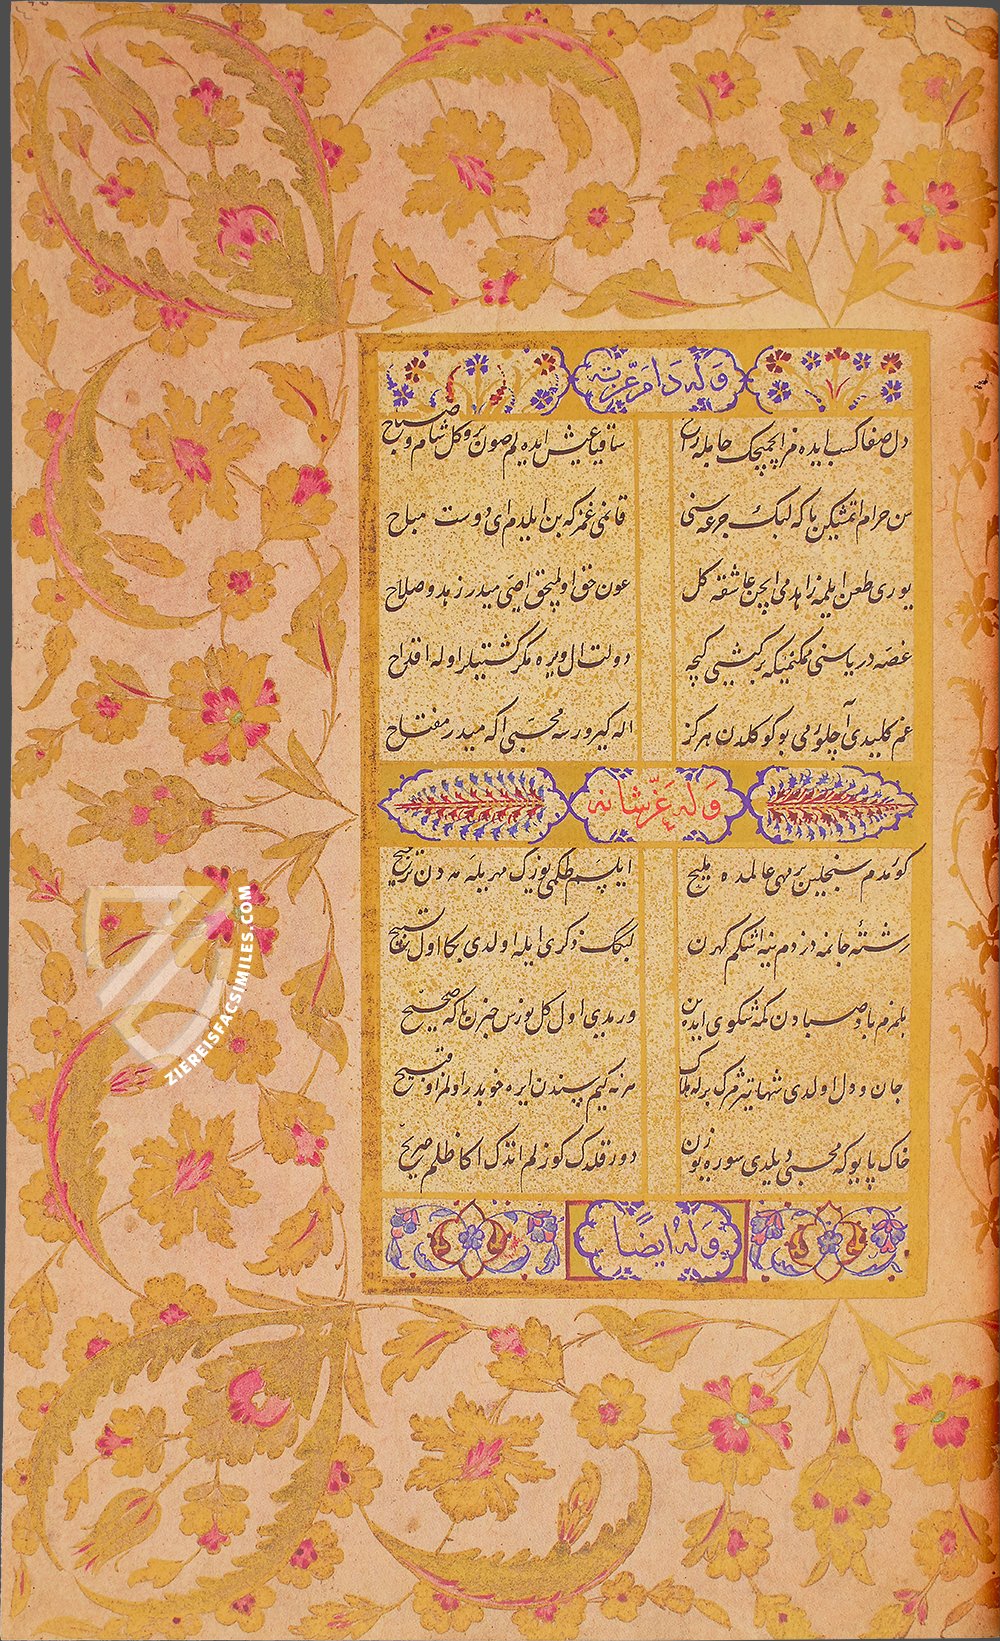 وله دام عزته
دل صفا کسب ایده مز ایچمیجک جام له راح
ساقیا عیش ایده لم صون برو کل شام و صباح
سن حرام اتمشیکن باکه لبک جرعه سنی
قانمی غمزه که بن ایلدم ای دوست مباح
یوری طعن ایلمه زاهد می ایچن عاشقه کل
عون حق اولمیحق اصی میدر زهد و صلاح
غصه دریاسنی ممکنمیکه بر کیشی کچه
دولت ال ویره مکر کشتیلر اوله اقداح
غم کلیدی آچلورمی بو کوکلدن هرکز
اله کیرورسه محبی اکه میدر مفتاح
وله عز شانه
کورمدم سنجلین بر مهی عالمده ملیح
ایلیم طکمی یوزک مهر یله مه دن ترجیح
رشته جانمه دزدم ینه اشکم کهرن
لبک ذکری ایله اولدی بکا اول تسبیح
بلمزم باد صبادن کمه شکوی ایده ین
ویرمدی اول کل نورس خبرن باکه صحیح
جان و دل اولدی شها تیر مژک برله هلاک
هر نه کیم سندن ایره خوبدر اولمز او قبیح
خاک پایوکه محبی دیلدی سوره یوزن
دور قلدک کوزلم اندک اکا ظلم صریح
وله ایضا
ZIEREISFACSIMILES.COM